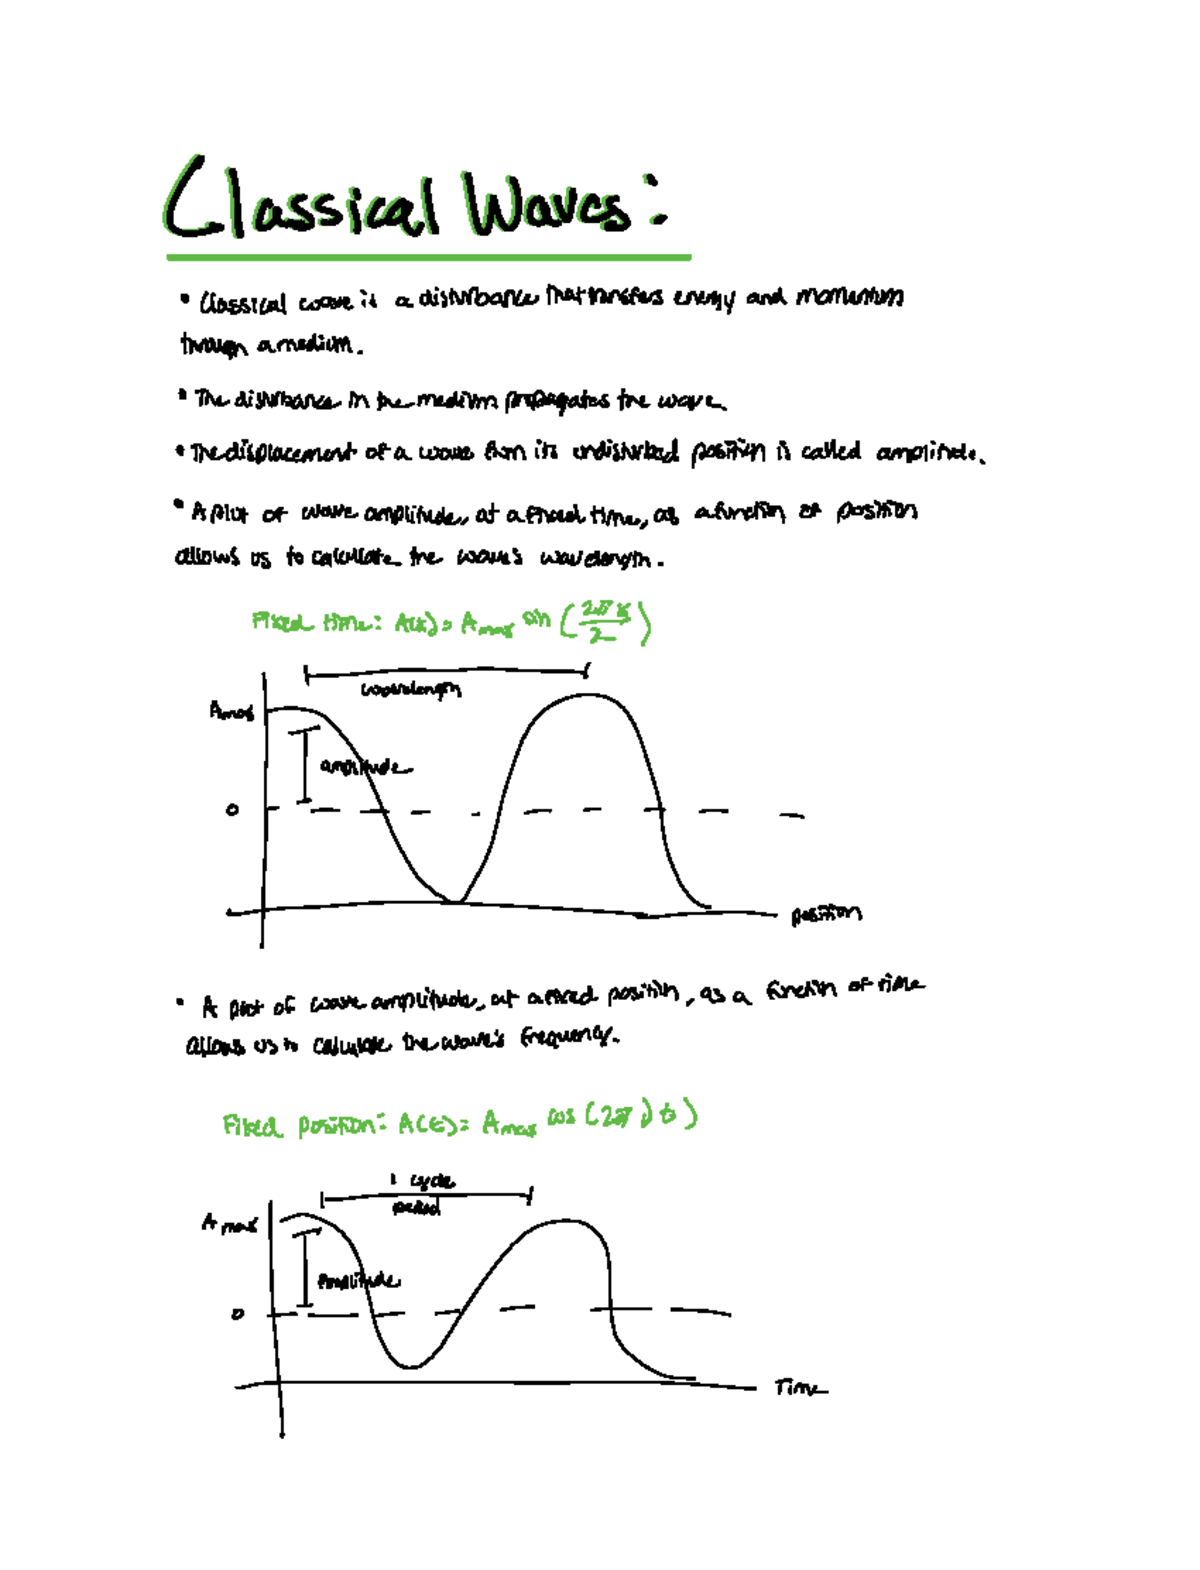 Classical Waves:
• Classical wave is a disturbance that transfers energy and momentum
through a medium.
• The disturbance in the medium propagates the wave.
• The displacement of a wave from its undisturbed position is called amplitude.
• A plot of wave amplitude, at a fixed time, as a function of position
allows us to calculate the wave's wavelength.
Fixed time: A(x) = Amax sin (2πx/2)
wavelength
Amax
amplitude
0
position
• A plot of wave amplitude, at a fixed position, as a function of time
allows us to calculate the wave's frequency.
Fixed position: A(t) = Amax cos (2π ν t)
1 cycle
period
Amax
Amplitude
0
Time